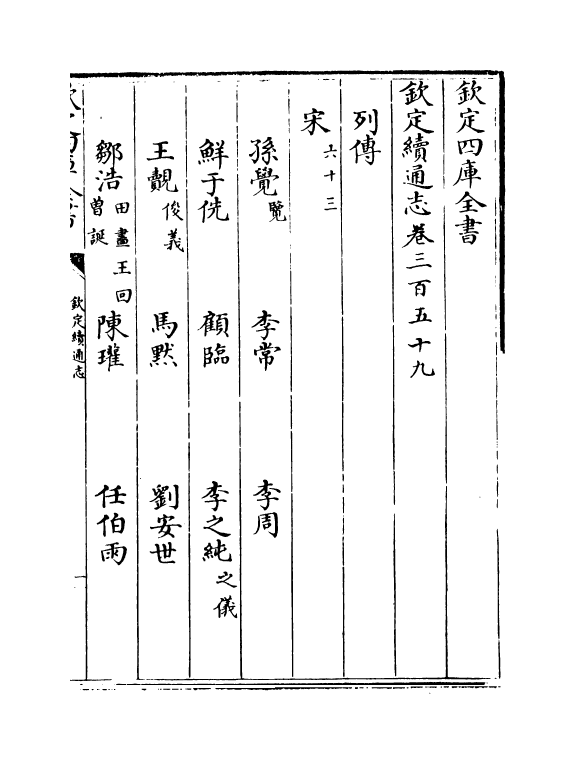 欽定四庫全書
欽定續通志卷三百五十九
列傳
宋六十三
孫覺覽 李常 李周
鮮于侁 顧臨 李之純之儀
王覿俊義 馬默 劉安世
鄒浩田晝王回曾誕 陳瓘 任伯雨
欽定續通志
一